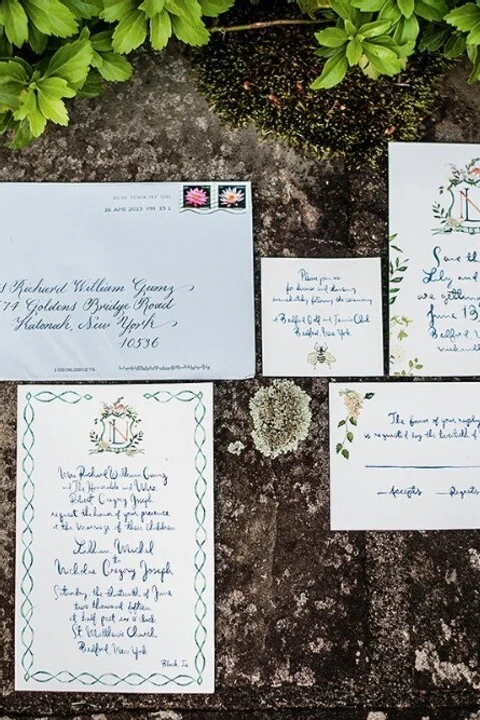 NEW YORK NY 100
16 APR 2015 PM 15 L
s Richard William Gunz
74 Goldens Bridge Road
Katonah, New York
10536
10536200274
Please join us
for dinner and dancing
immediately following the ceremony
Bedford Golf and Tennis Club
Bedford, New York
LN
Save th
Lily and
are getting
June 13
Bedford, N
The favor of your reply
is requested by the twentieth of
Accepts Regrets
LN
Mrs. Richard William Gunz
and The Honorable and Mrs.
Robert Gregory Joseph
request the honor of your presence
at the marriage of their children
Lillian
to
Nicholas Gregory Joseph
Saturday the thirteenth of June
two thousand fifteen
at half past six o'clock
St. Matthew's Church
Bedford, New York
Black Tie